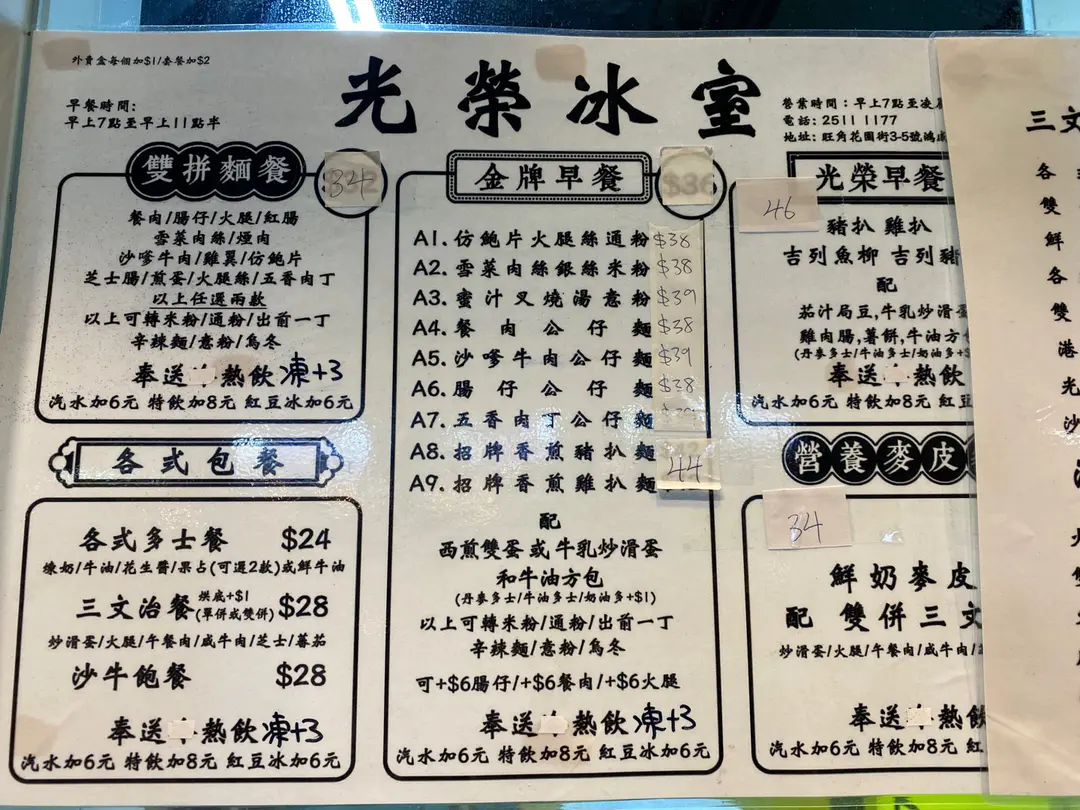 外賣盒每個加$1/套餐加$2
光榮冰室
早餐時間:
早上7點至早上11點半
營業時間:早上7點至凌
電話: 2511 1177
地址: 旺角花園街3-5號鴻
雙拼麵餐
34
餐肉/腸仔/火腿/紅腸
雪菜肉絲/煙肉
沙嗲牛肉/雞翼/仿鮑片
芝士腸/煎蛋/火腿絲/五香肉丁
以上任選兩款
以上可轉米粉/通粉/出前一丁
辛辣麵/意粉/烏冬
奉送 熱飲凍+3
汽水加6元 特飲加8元 紅豆冰加6元
各式包餐
各式多士餐 $24
煉奶/牛油/花生醬/果占(可選2款)或鮮牛油
三文治餐 烘底+$1 (單併或雙併) $28
炒滑蛋/火腿/午餐肉/咸牛肉/芝士/蕃茄
沙牛飽餐 $28
奉送 熱飲凍+3
汽水加6元 特飲加8元 紅豆冰加6元
金牌早餐
$36
A1.仿鮑片火腿絲通粉 $38
A2.雪菜肉絲銀絲米粉 $38
A3.蜜汁叉燒湯意粉 $39
A4.餐肉公仔麵 $38
A5.沙嗲牛肉公仔麵 $39
A6.腸仔公仔麵 $38
A7.五香肉丁公仔麵
A8.招牌香煎豬扒麵 44
A9.招牌香煎雞扒麵
配
西煎雙蛋或牛乳炒滑蛋
和牛油方包
(丹麥多士/牛油多士/奶油多+$1)
以上可轉米粉/通粉/出前一丁
辛辣麵/意粉/烏冬
可+$6腸仔/+$6餐肉/+$6火腿
奉送 熱飲凍+3
汽水加6元 特飲加8元 紅豆冰加6元
光榮早餐
46
豬扒 雞扒
吉列魚柳 吉列豬
配
茄汁局豆,牛乳炒滑
雞肉腸,薯餅,牛油方
(丹麥多士/牛油多士/奶油多+$
奉送 熱飲
汽水加6元 特飲加8元 紅豆
營養麥皮
34
鮮奶麥皮
配 雙併三文
炒滑蛋/火腿/午餐肉/咸牛肉/
奉送 熱飲
汽水加6元 特飲加8元 紅
三文
各
雙
鮮
各
雙
港
光
沙